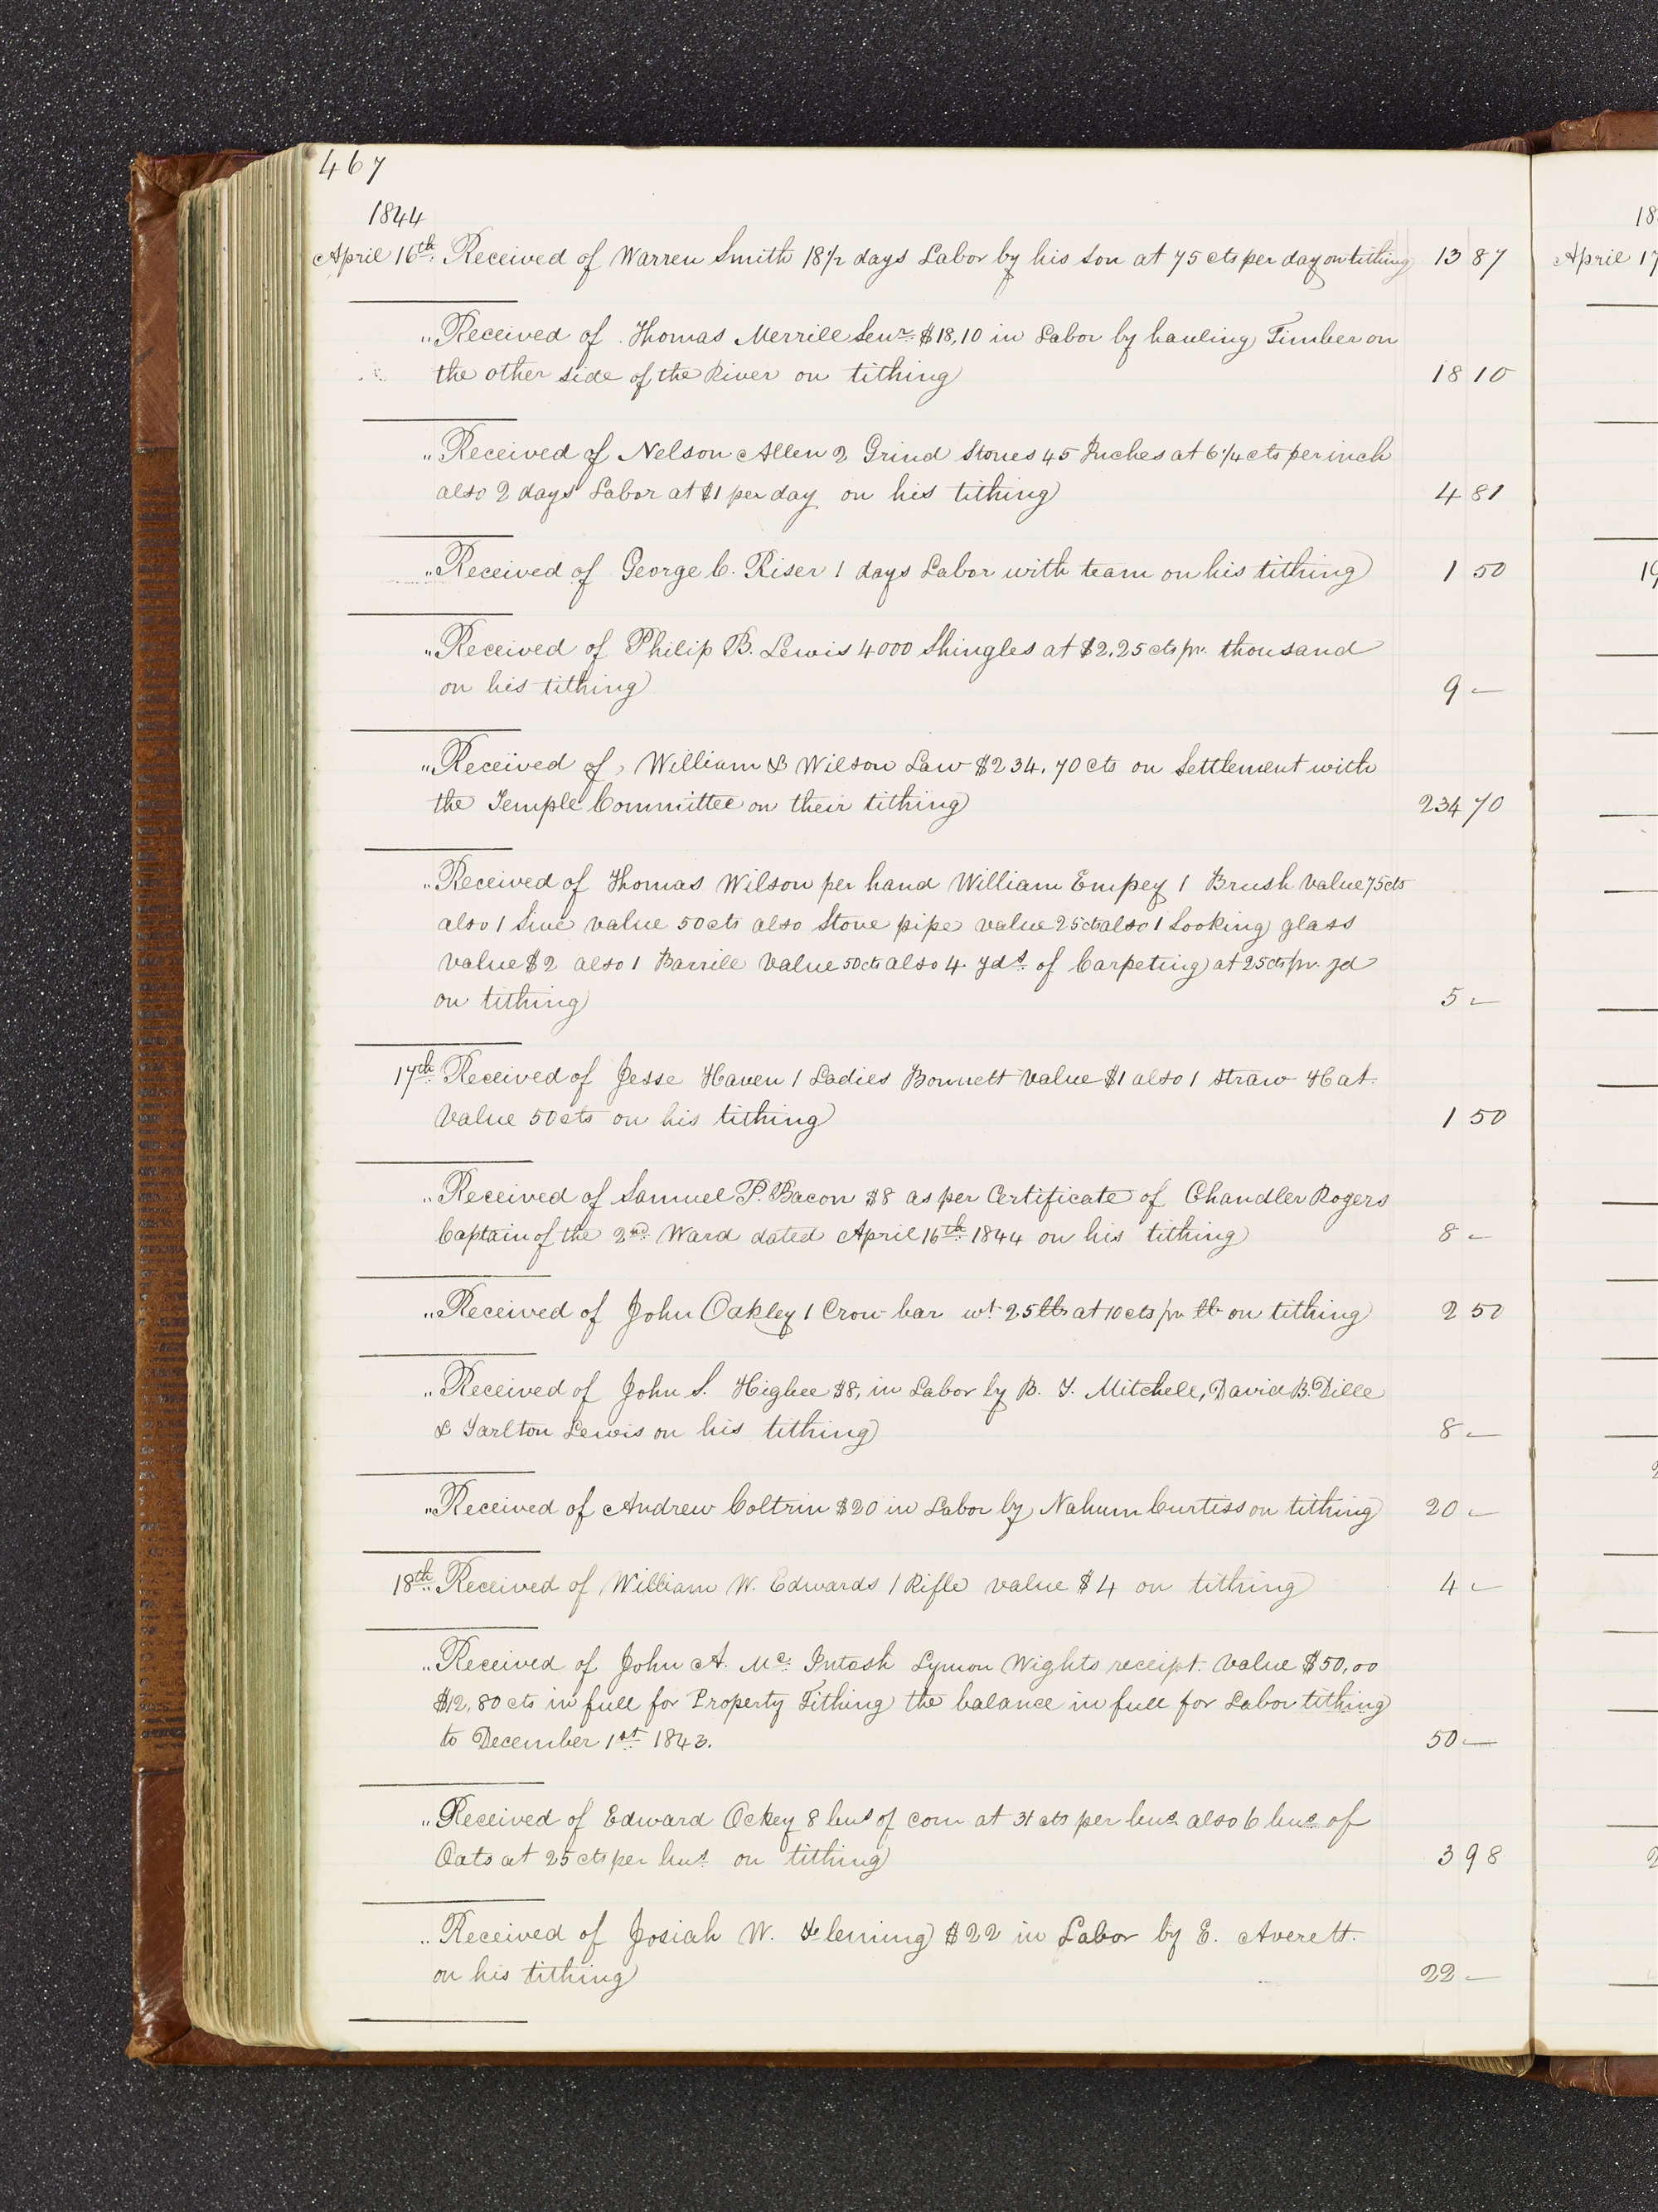 467
1844
April 16th. Received of Warren Smith 18 1/2 days Labor by his Son at 75 cts per day on tithing 13 87
" Received of Thomas Merrill Senr. $18,10 in Labor by hauling Timber on
the other side of the River on tithing 18 10
" Received of Nelson Allen 2 Grind Stones 45 Inches at 6 1/4 cts per inch
also 2 days Labor at $1 per day on his tithing 4 81
" Received of George C. Riser 1 days Labor with team on his tithing 1 50
" Received of Philip B. Lewis 4000 Shingles at $2.25 cts pr. thousand
on his tithing 9 —
" Received of William & Wilson Law $234.70 cts on Settlement with
the Temple Committee on their tithing 234 70
" Received of Thomas Wilson per hand William Empey 1 Brush value 75 cts
also 1 value 50 cts also Stove pipe value 25 cts also 1 Looking glass
value $2 also 1 Barrile value 50 cts also 4 yds. of Carpeting at 25 cts pr. yd
on tithing 5 —
17th. Received of Jesse Haven 1 Ladies Bonnett value $1 also 1 Straw Hat.
value 50 cts on his tithing 1 50
" Received of Samuel P. Bacon $8 as per Certificate of Chandler Rogers
Captain of the 2nd. Ward dated April 16th. 1844 on his tithing 8 —
" Received of John Oakley 1 Crow bar wt. 25 lbs at 10 cts pr lb on tithing 2 50
" Received of John S. Higbee $8, in Labor by B. T. Mitchell, David B. Dille
& Tarlton Lewis on his tithing 8 —
" Received of Andrew Coltrin $20 in Labor by Nahum Curtiss on tithing 20 —
18th. " Received of William W. Edwards 1 Rifle value $4 on tithing 4 —
" Received of John A. Mc. Intosh Lymon Wights receipt. value $50,00
$12,80 cts in full for Property Tithing the balance in full for Labor tithing
to December 1st. 1843. 50 —
" Received of Edward Ockey 8 bus of corn at 31 cts per bus. also 6 bus. of
Oats at 25 cts per bus. on tithing 3 98
" Received of Josiah W. Fleming $22 in Labor by E. Averett.
on his tithing 22 —
18
April 17